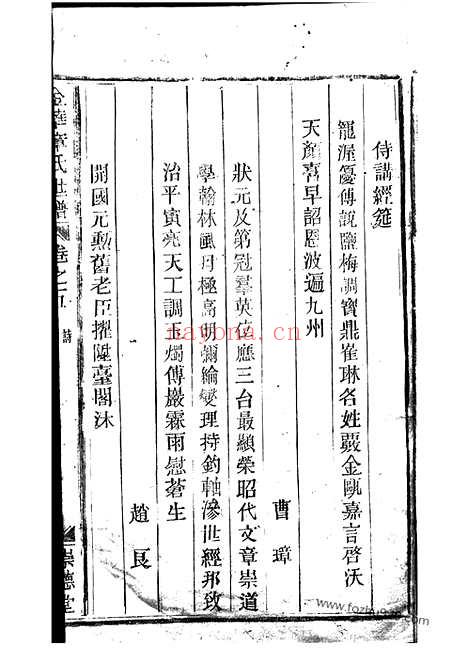 侍講經筵
寵渥優傅說鹽梅調寶鼎崔琳名姓覆金甌嘉言啓沃
天顏喜早詔恩波遍九州
曹璋
狀元及第冠羣英位應三台最顯榮昭代文章崇道
學翰林風月極高明彌綸燮理持鈞軸濟世經邦致
治平寅亮天工調元燭傅巖霖雨慰蒼生
趙艮
開國元勲舊老臣擢陞臺閣沐
金華章氏世譜
卷之五
詩
崇德堂
nayona.cn
www.fozhu920.com